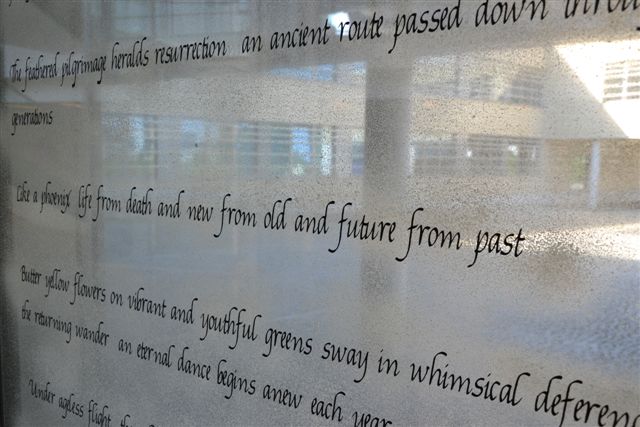 The feathered pilgrimage heralds resurrection an ancient route passed down
generations
Like a phoenix life from death and new from old and future from past
Butter yellow flowers on vibrant and youthful greens sway in whimsical
the returning wander an eternal dance begins anew each year
Under ageless flight